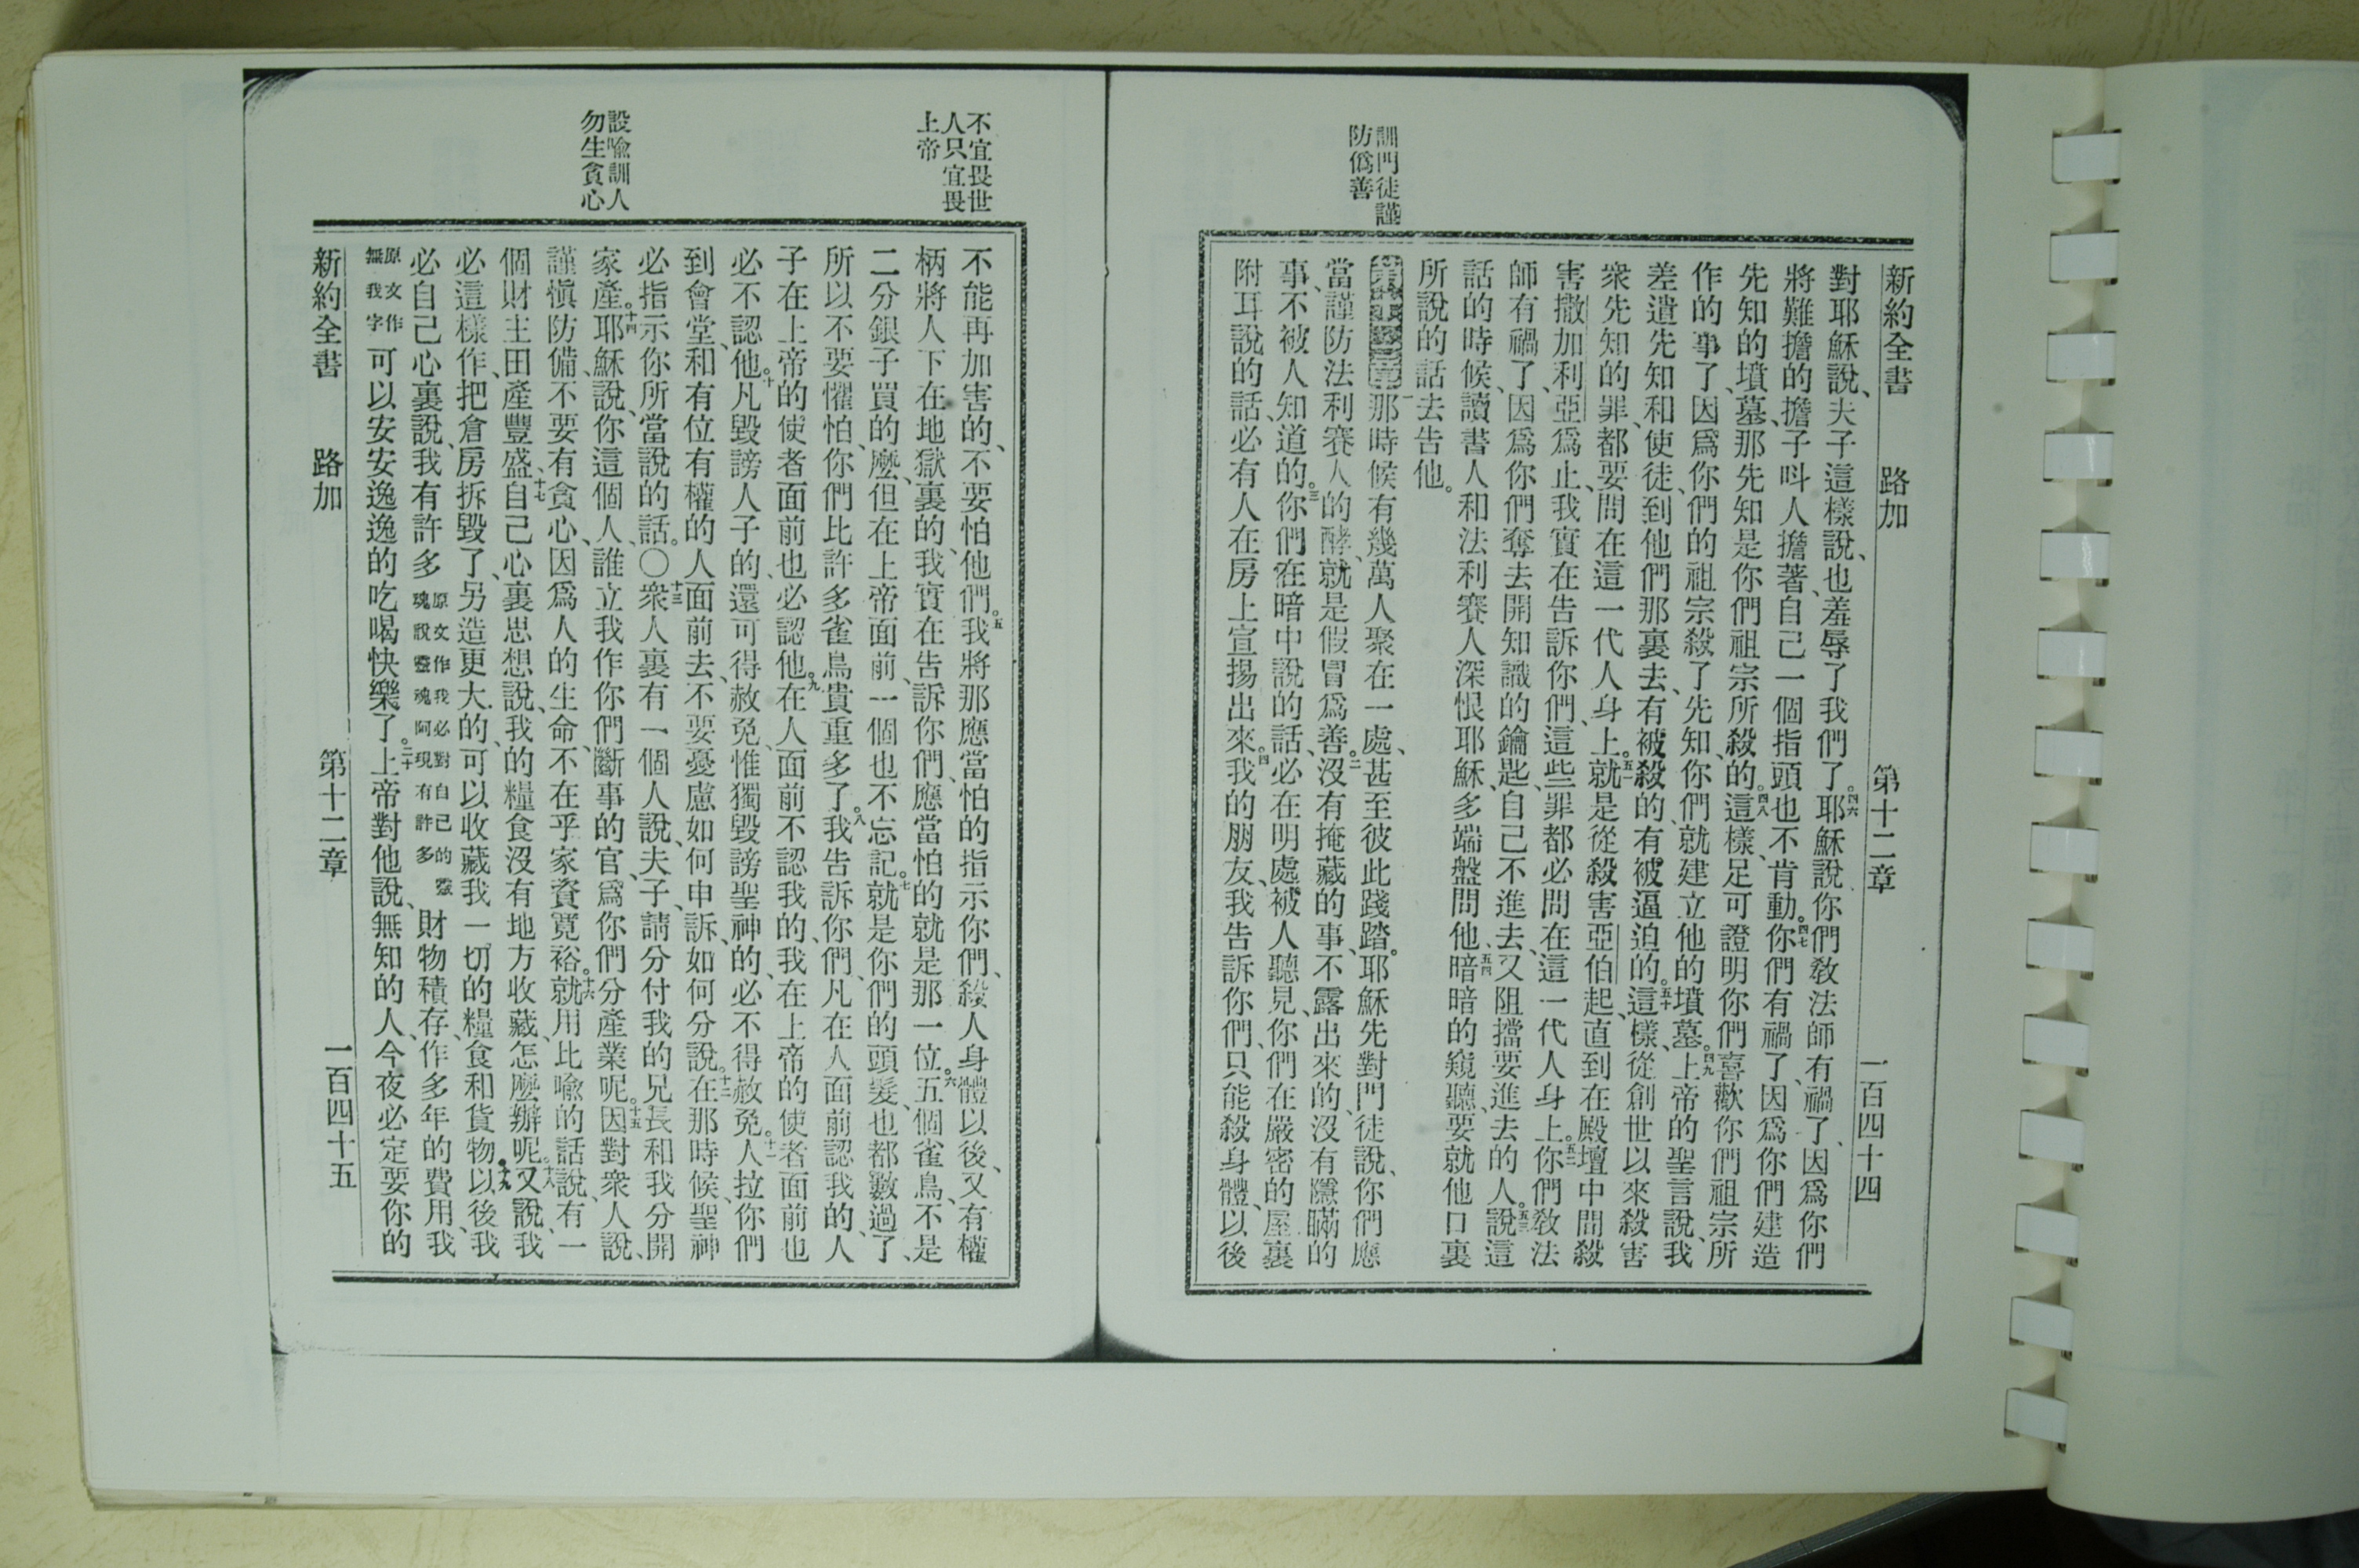 新約全書 路加 第十二章 一百四十四
對耶穌說、夫子這樣說、也羞辱了我們了。四六耶穌說、你們敎法師有禍了、因爲你們
將難擔的擔子呌人擔著、自己一個指頭也不肯動。四七你們有禍了、因爲你們建造
先知的墳墓、那先知是你們祖宗所殺的。四八這樣、足可證明你們喜歡你們祖宗所
作的事了、因爲你們的祖宗殺了先知、你們就建立他的墳墓。四九上帝的聖言說、我
差遣先知和使徒、到他們那裏去、有被殺的、有被逼迫的。五十這樣、從創世以來殺害
衆先知的罪、都要問在這一代人身上。五一就是從殺害亞伯起、直到在殿壇中間殺
害撒加利亞爲止、我實在告訴你們、這些罪都必問在這一代人身上。五二你們敎法
師有禍了、因爲你們奪去開知識的鑰匙、自己不進去、又阻擋要進去的人。五三說這
話的時候、讀書人和法利賽人深恨耶穌、多端盤問他、五四暗暗的窺聽、要就他口裏
所說的話去告他。
訓門徒謹
防僞善
第十二章一那時候有幾萬人聚在一處、甚至彼此踐踏。耶穌先對門徒說、你們應
當謹防法利賽人的酵、就是假冒爲善。二沒有掩藏的事、不露出來的、沒有隱瞞的
事、不被人知道的。三你們在暗中說的話、必在明處被人聽見、你們在嚴密的屋裏
附耳說的話、必有人在房上宣揚出來。四我的朋友、我告訴你們、只能殺身體、以後
不宜畏世
人只宜畏
上帝
不能再加害的、不要怕他們。五我將那應當怕的指示你們、殺人身體以後、又有權
柄將人下在地獄裏的、我實在告訴你們、應當怕的就是那一位。六五個雀鳥、不是
二分銀子買的麼、但在上帝面前、一個也不忘記。七就是你們的頭髮、也都數過了、
所以不要懼怕、你們比許多雀鳥貴重多了。八我告訴你們、凡在人面前認我的、人
子在上帝的使者面前也必認他。九在人面前不認我的、我在上帝的使者面前也
必不認他。十凡毀謗人子的、還可得赦免、惟獨毀謗聖神的、必不得赦免。十一人拉你們
到會堂、和有位有權的人面前去、不要憂慮如何申訴、如何分說。十二在那時候、聖神
必指示你所當說的話。〇十三衆人裏有一個人說、夫子、請分付我的兄長和我分開
家產。十四耶穌說、你這個人、誰立我作你們斷事的官、爲你們分產業呢。十五因對衆人說、
設喩訓人
勿生貪心
謹愼防備、不要有貪心、因爲人的生命、不在乎家資寬裕。十六就用比喩的話說、有一
個財主田產豐盛、十七自己心裏思想說、我的糧食沒有地方收藏、怎麼辦呢。十八又說、我
必這樣作、把倉房拆毀了、另造更大的、可以收藏我一切的糧食和貨物、十九以後我
必自己心裏說、我有許多原文作我必對自己的靈魂說靈魂阿現有許多財物積存、作多年的費用、我
原文作無我字可以安安逸逸的吃喝快樂了。二十上帝對他說、無知的人、今夜必定要你的
新約全書 路加 第十二章 一百四十五